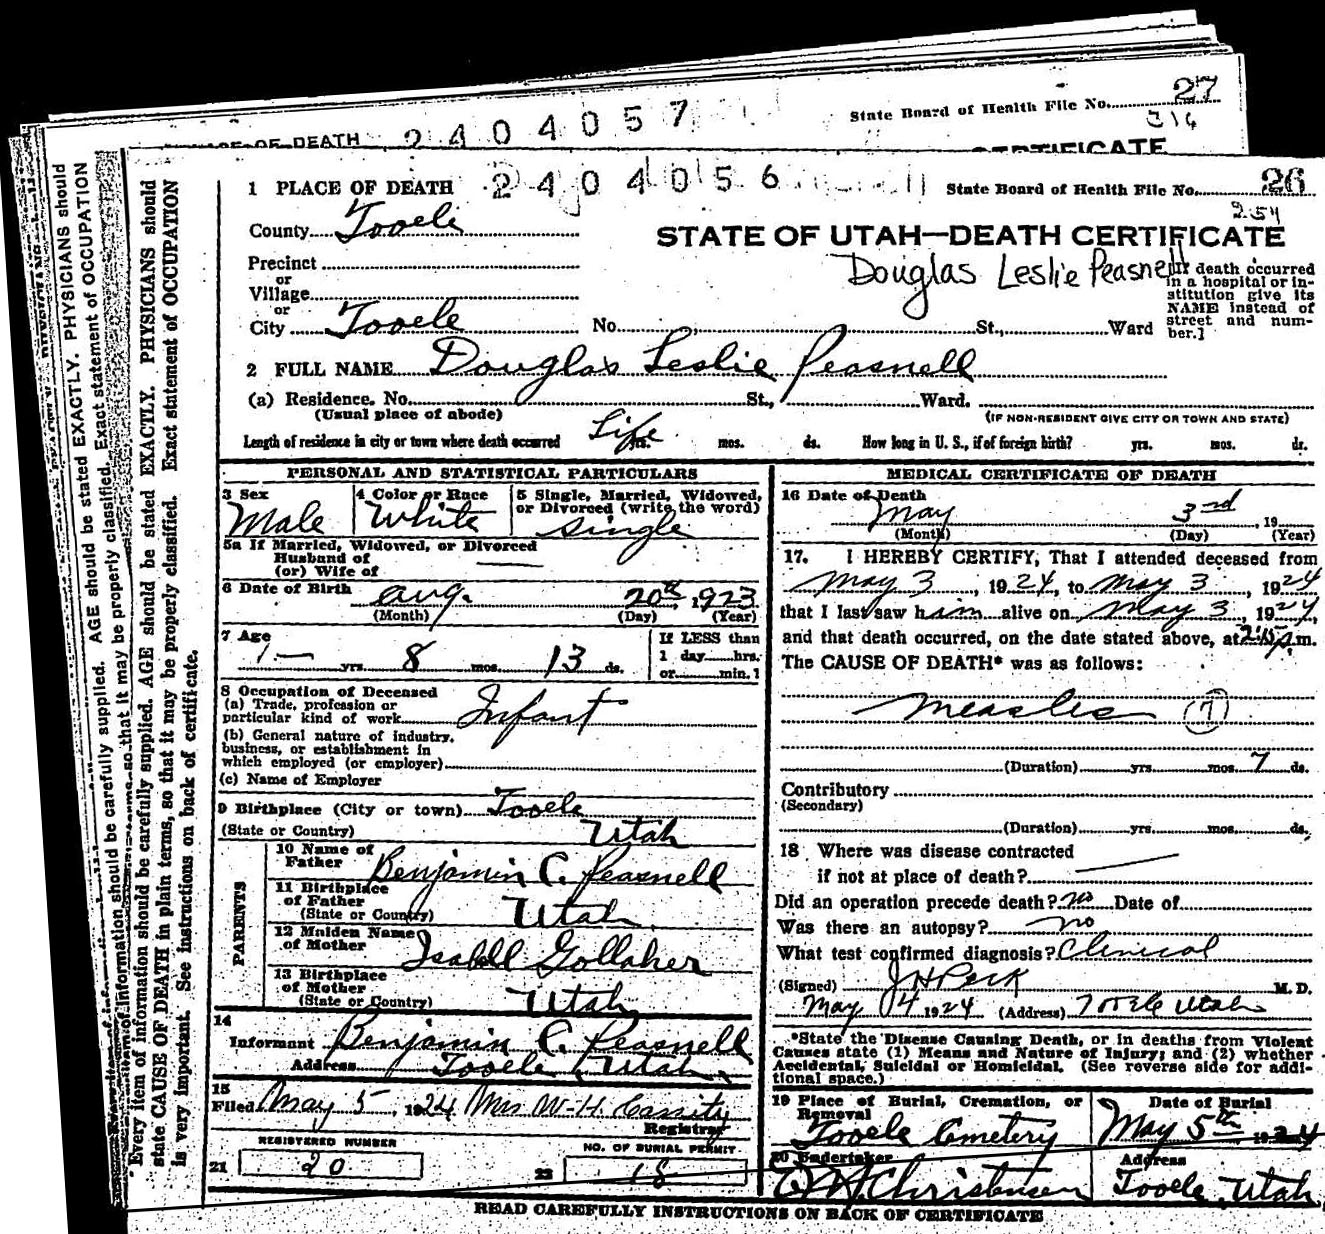 State Board of Health File No. 27
316
OF DEATH 2404057
CERTIFICATE
1 PLACE OF DEATH 2404056
State Board of Health File No. 26
254
County Tooele
STATE OF UTAH—DEATH CERTIFICATE
Douglas Leslie Peasnell
[If death occurred in a hospital or institution give its NAME instead of street and number.]
Precinct
or
Village
or
City Tooele No. St., Ward
2 FULL NAME Douglas Leslie Peasnell
(a) Residence. No. St., Ward.
(Usual place of abode) (IF NON-RESIDENT GIVE CITY OR TOWN AND STATE)
Length of residence in city or town where death occurred Life yrs. mos. ds. How long in U. S., if of foreign birth? yrs. mos. ds.
PERSONAL AND STATISTICAL PARTICULARS
3 Sex Male
4 Color or Race White
5 Single, Married, Widowed, or Divorced (write the word) Single
5a If Married, Widowed, or Divorced
Husband of
(or) Wife of
6 Date of Birth Aug. 20th, 1923
(Month) (Day) (Year)
7 Age 1— yrs 8 mos. 13 ds.
If LESS than
1 day hrs.
or min.?
8 Occupation of Deceased
(a) Trade, profession or
particular kind of work Infant
(b) General nature of industry,
business, or establishment in
which employed (or employer)
(c) Name of Employer
9 Birthplace (City or town) Tooele
(State or Country) Utah
PARENTS
10 Name of Father Benjamin C. Peasnell
11 Birthplace of Father
(State or Country) Utah
12 Maiden Name of Mother Isabell Gollaher
13 Birthplace of Mother
(State or Country) Utah
14
Informant Benjamin C. Peasnell
Address Tooele, Utah.
15
Filed May 5, 1924 Mrs W-H Cassity
Registrar
REGISTERED NUMBER
21 20
NO. OF BURIAL PERMIT
22 18
MEDICAL CERTIFICATE OF DEATH
16 Date of Death May 3rd, 19
(Month) (Day) (Year)
17. I HEREBY CERTIFY, That I attended deceased from
May 3, 1924, to May 3, 1924
that I last saw him alive on May 3, 1924,
and that death occurred, on the date stated above, at m.
The CAUSE OF DEATH* was as follows:
Measles (7)
(Duration) yrs. mos. 7 ds.
Contributory
(Secondary)
(Duration) yrs. mos. ds.
18 Where was disease contracted
if not at place of death?
Did an operation precede death? no Date of
Was there an autopsy? no
What test confirmed diagnosis? Clinical
(Signed) JH Peck M. D.
May 4 1924 (Address) Tooele Utah
*State the Disease Causing Death, or in deaths from Violent
Causes state (1) Means and Nature of Injury; and (2) whether
Accidental, Suicidal or Homicidal. (See reverse side for addi-
tional space.)
19 Place of Burial, Cremation, or Removal
Tooele Cemetery
Date of Burial
May 5th 1924
20 Undertaker
Christensen
Address
Tooele, Utah
READ CAREFULLY INSTRUCTIONS ON BACK OF CERTIFICATE
Every item of information should be carefully supplied. AGE should be stated EXACTLY. PHYSICIANS should
state CAUSE OF DEATH in plain terms, so that it may be properly classified. Exact statement of OCCUPATION
is very important. See instructions on back of certificate.